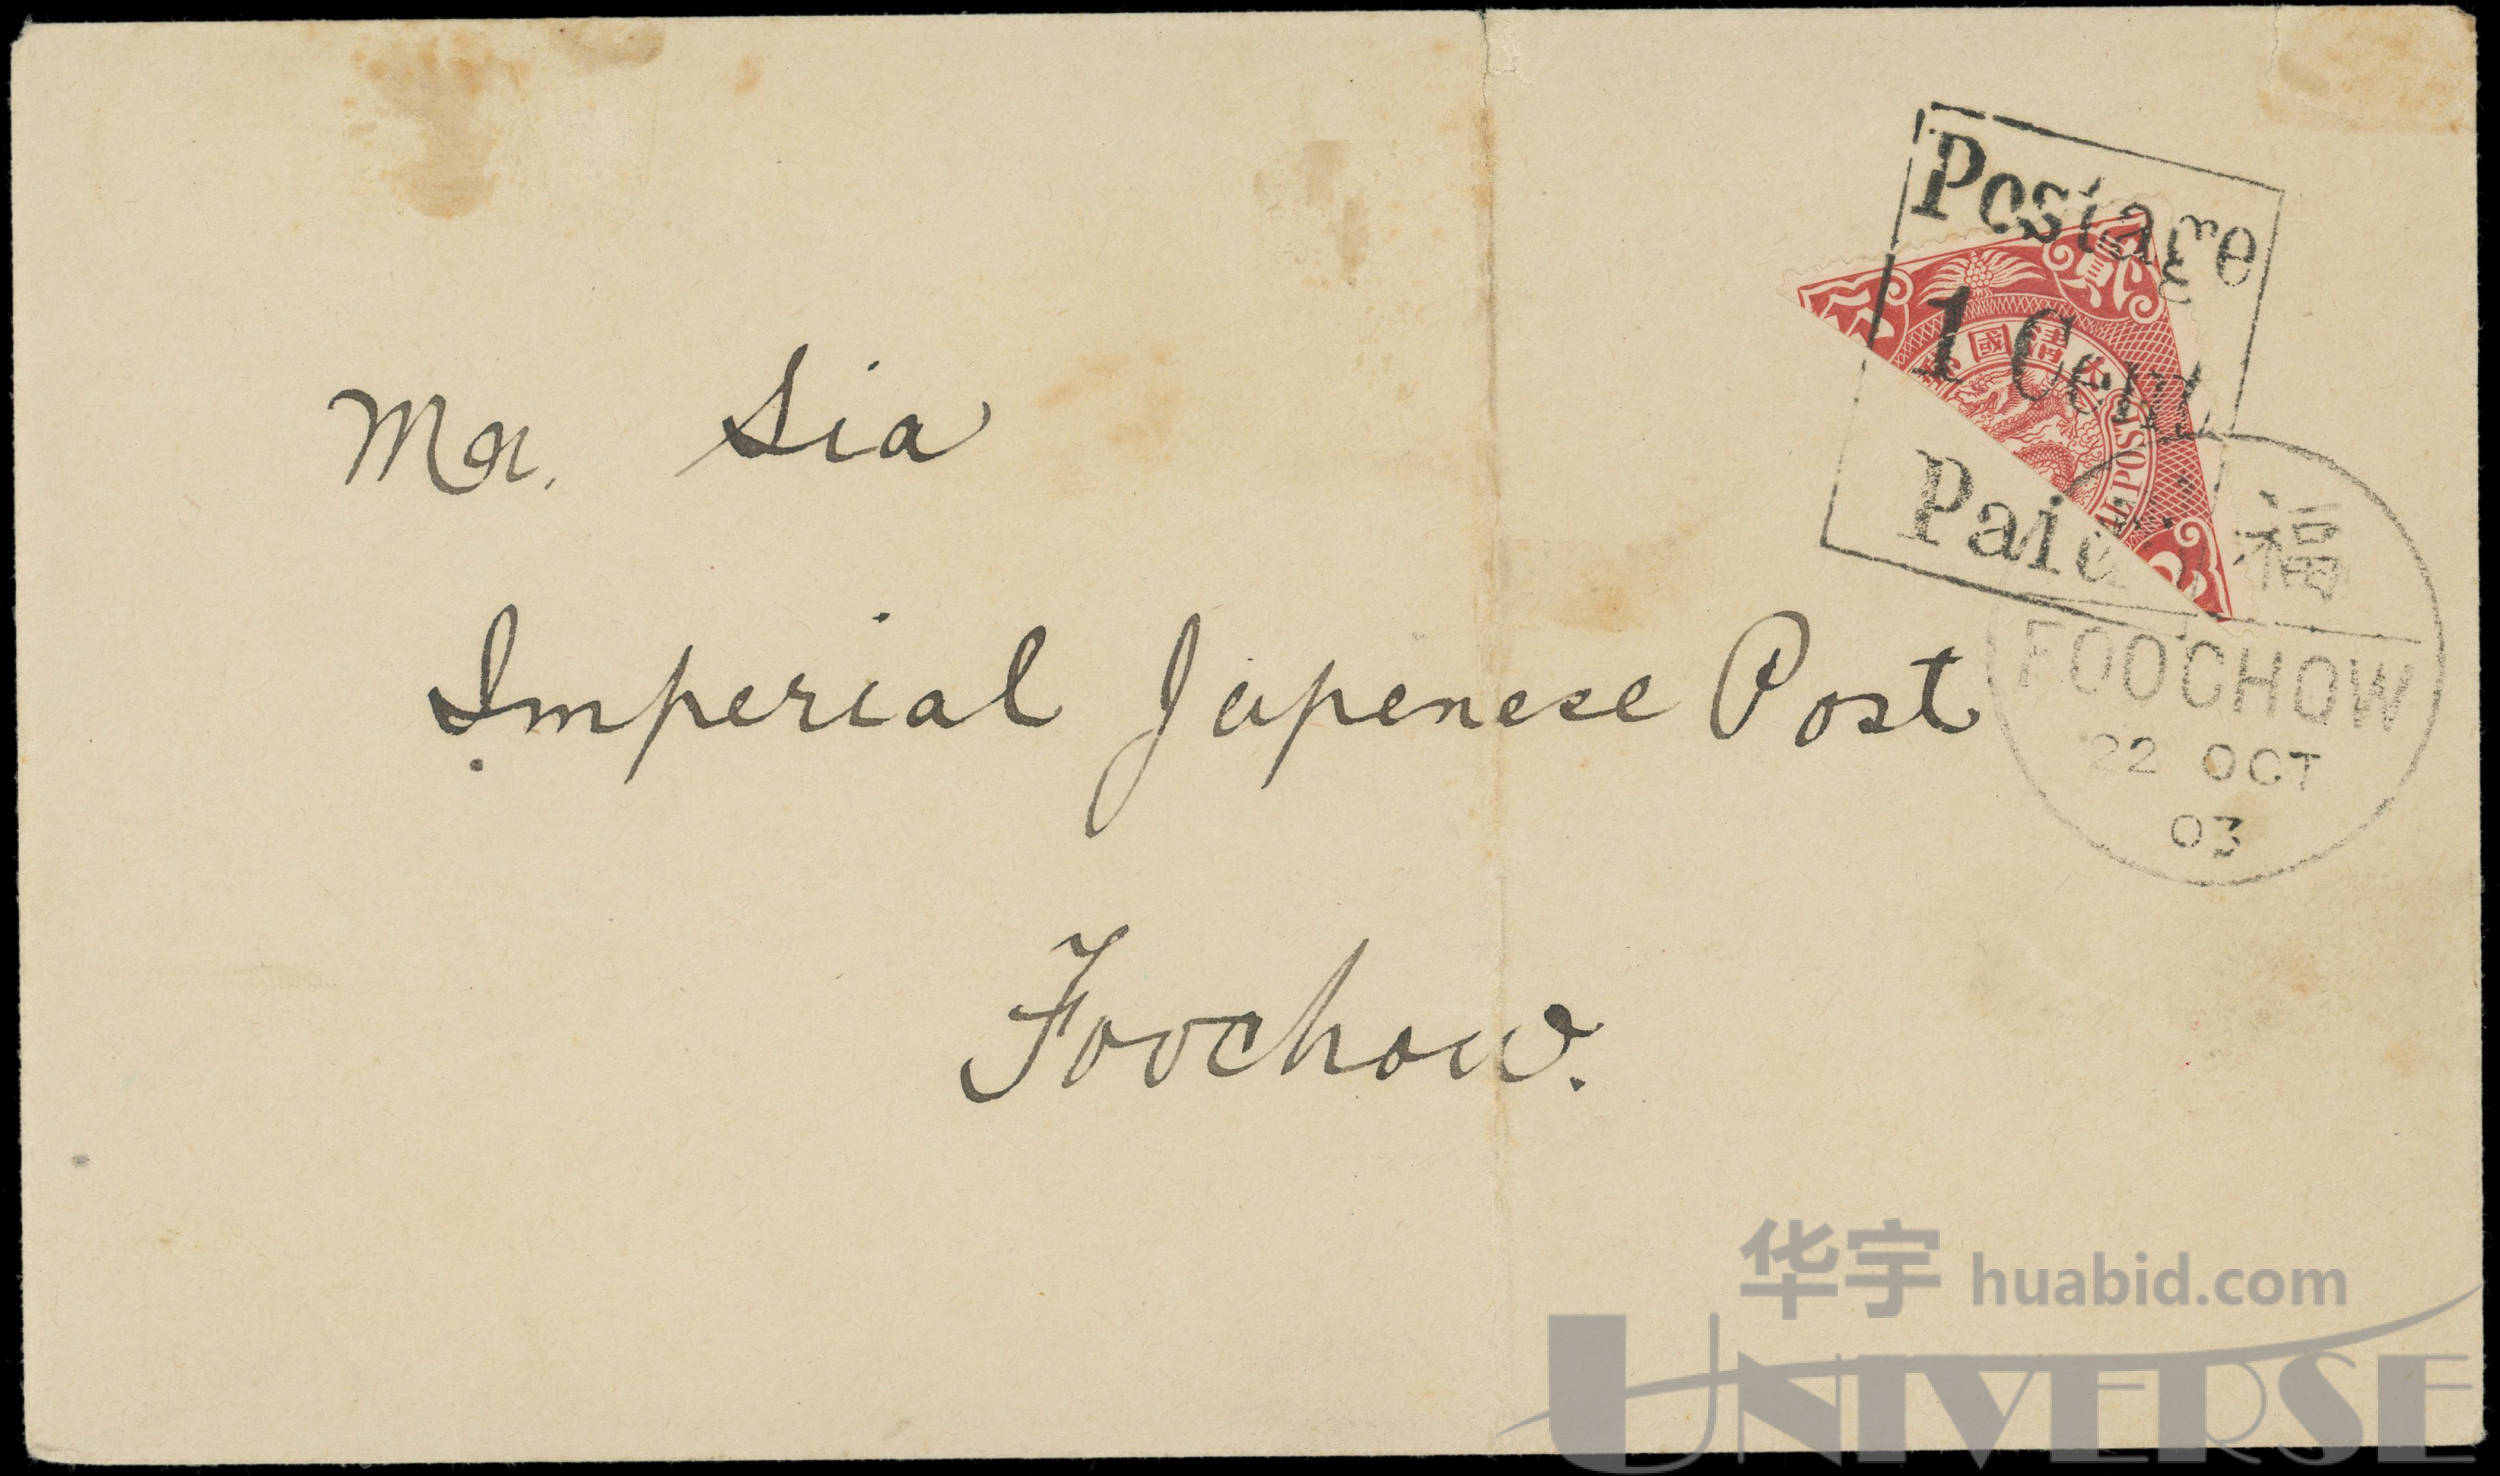 Postage
1 Cent
Paid
貳
大清國
AL POST
2
福
FOOCHOW
22 OCT
03
Mr. Sia
Imperial Japenese Post
Foochow.
华宇 huabid.com
UNIVERSE